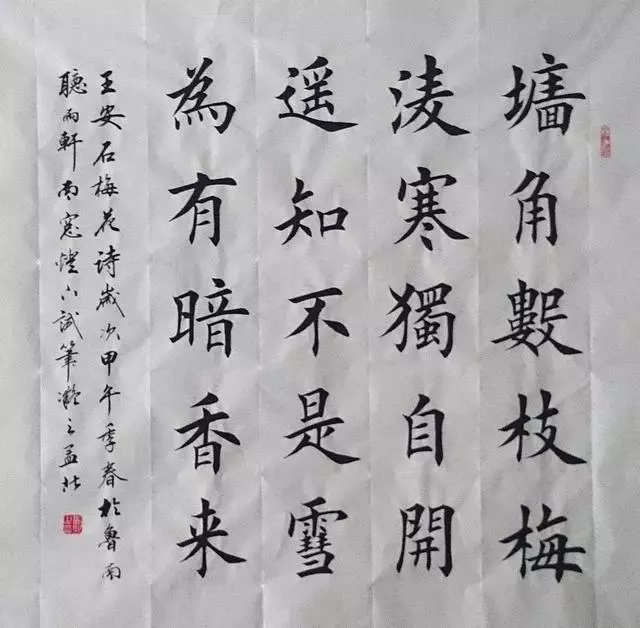 墻角數枝梅
淩寒獨自開
遥知不是雪
為有暗香来
王安石梅花诗歲次甲午季春於魯南
聽雨軒南窓燈下試筆凝之孟